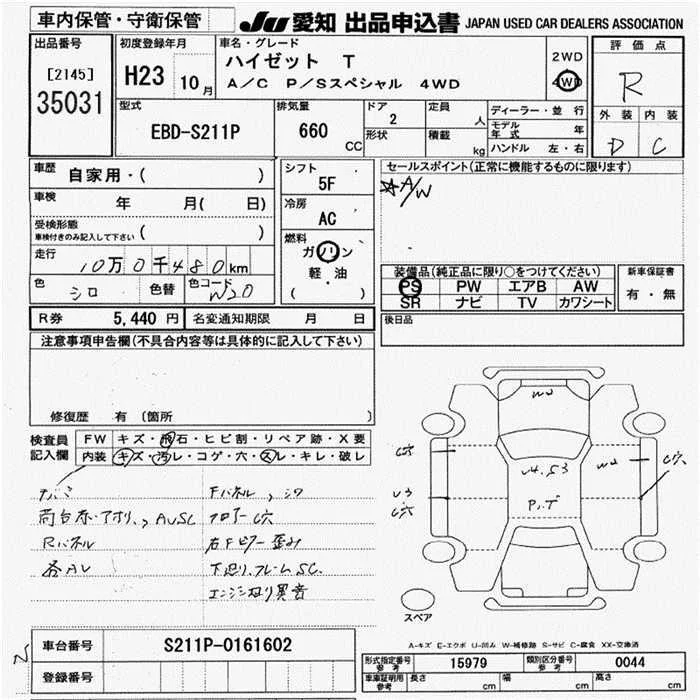 車内保管・守衛保管
JU 愛知 出品申込書 JAPAN USED CAR DEALERS ASSOCIATION
出品番号
[2145]
35031
初度登録年月
H23 10月
車名・グレード
ハイゼット T
A/C P/Sスペシャル 4WD
2WD
4WD
評価点
R
外装 内装
D C
型式
EBD-S211P
排気量
660 CC
ドア 2
形状
定員 人
積載 kg
ディーラー・並行
モデル年式 年
ハンドル 左・右
車歴 自家用・( )
車検 年 月( 日)
受検形態
車検付きのみ記入して下さい ( )
走行 10万0千480km
色 シロ 色替 色コード W20
シフト
5F
冷房
AC
燃料
ガソリン
軽・油
( )
セールスポイント(正常に機能するものに限ります)
☆A/W
装備品(純正品に限り○をつけてください)
PS PW エアB AW
SR ナビ TV カワシート
新車保証書
有・無
後日品
R券 5,440円 名変通知期限 月 日
注意事項申告欄(不具合内容等は具体的に記入して下さい)
修復歴 有(箇所 )
検査員記入欄
FW キズ・飛石・ヒビ割・リペア跡・X要
内装 キズ・汚レ・コゲ・穴・スレ・キレ・破レ
Rパネル
各AU
Fパネル
フロアーC穴
右Fピラー歪み
下廻り、フレームSC.
エンジン異音
W2
U4.S3
P.T
W2
C穴
U3
C穴
スペア
A-キズ E-エクボ U-凹み W-補修跡 S-サビ C-腐食 XX-交換済
車台番号 S211P-0161602
登録番号
形式指定番号 参考 15979 類別区分番号 参考 0044
車庫証明用 参考 長さ cm 幅 cm 高さ cm